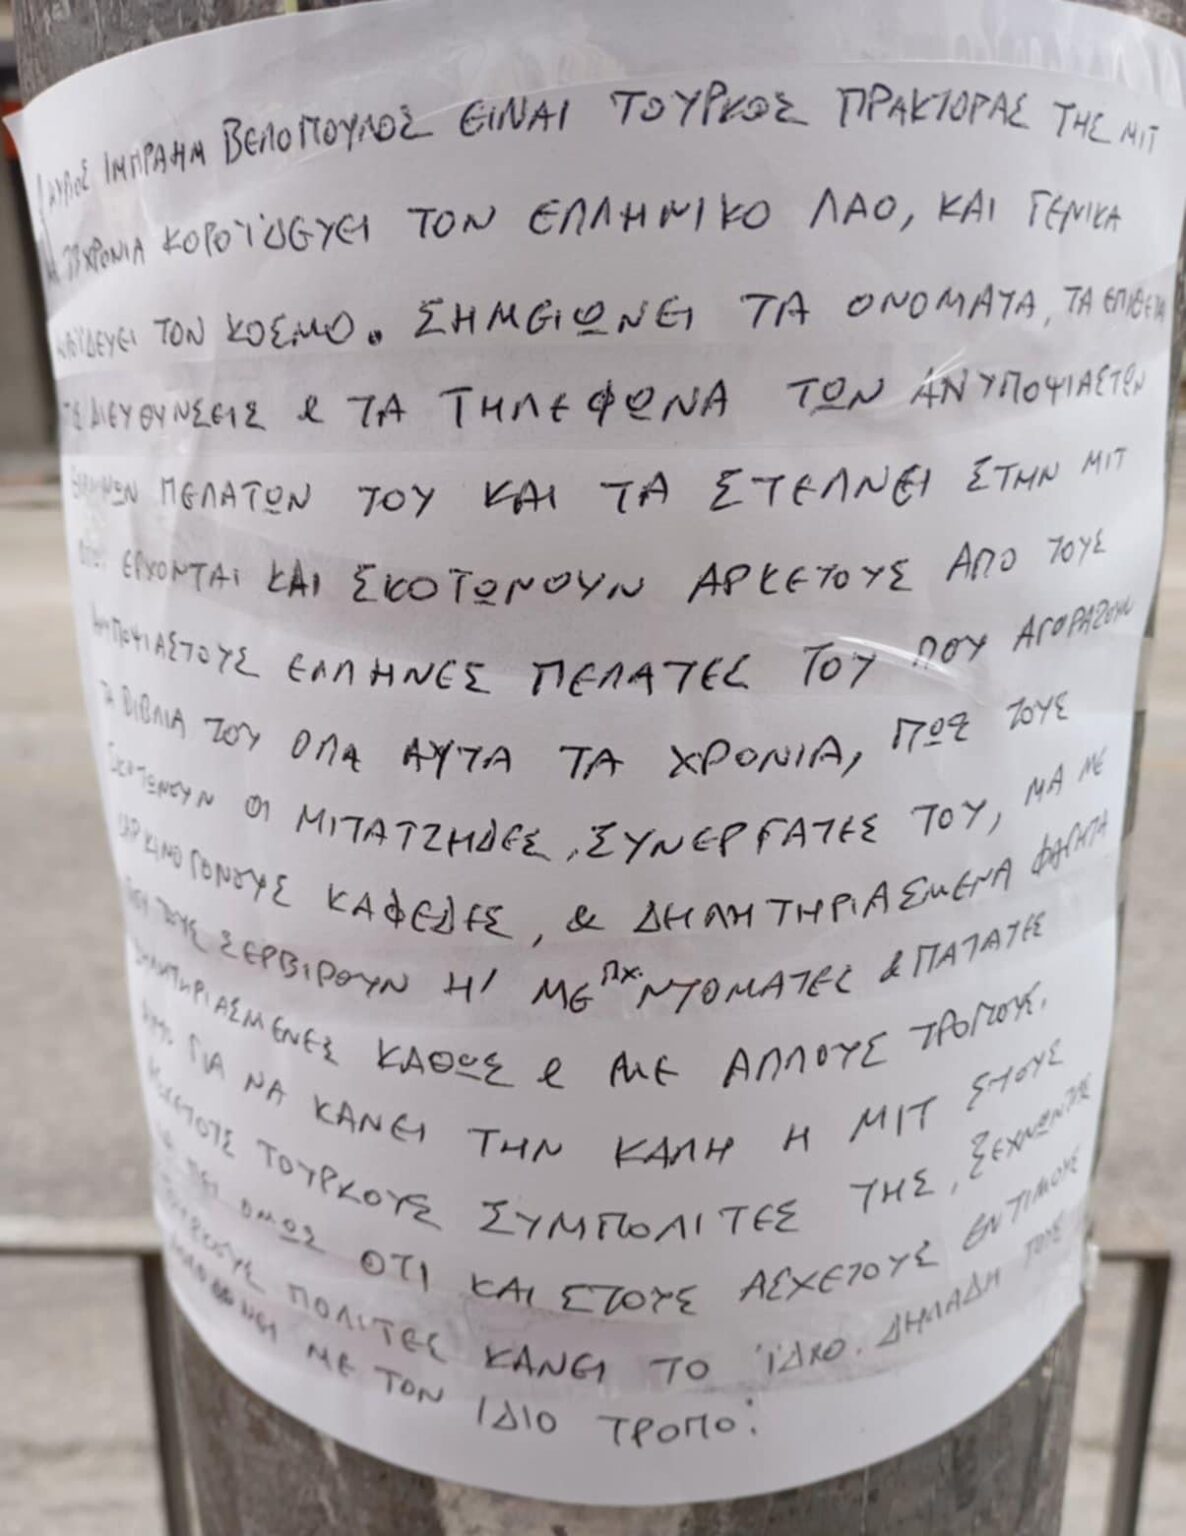 ΙΜΠΡΑΗΜ ΒΕΛΟΠΟΥΛΟΣ ΕΙΝΑΙ ΤΟΥΡΚΟΣ ΠΡΑΚΤΟΡΑΣ ΤΗΣ ΜΙΤ
ΧΡΟΝΙΑ ΚΟΡΟΪΔΕΥΕΙ ΤΟΝ ΕΛΛΗΝΙΚΟ ΛΑΟ, ΚΑΙ ΓΕΝΙΚΑ
ΤΟΝ ΚΟΣΜΟ. ΣΗΜΕΙΩΝΕΙ ΤΑ ΟΝΟΜΑΤΑ, ΤΑ ΕΠΙΘΕΤΑ
ΔΙΕΥΘΥΝΣΕΙΣ & ΤΑ ΤΗΛΕΦΩΝΑ ΤΩΝ ΑΝΥΠΟΨΙΑΣΤΩΝ
ΠΕΛΑΤΩΝ ΤΟΥ ΚΑΙ ΤΑ ΣΤΕΛΝΕΙ ΣΤΗΝ ΜΙΤ
ΕΡΧΟΝΤΑΙ ΚΑΙ ΣΚΟΤΩΝΟΥΝ ΑΡΚΕΤΟΥΣ ΑΠΟ ΤΟΥΣ
ΑΝΥΠΟΨΙΑΣΤΟΥΣ ΕΛΛΗΝΕΣ ΠΕΛΑΤΕΣ ΤΟΥ ΠΟΥ ΑΓΟΡΑΖΟΥΝ
ΤΑ ΒΙΒΛΙΑ ΤΟΥ ΟΛΑ ΑΥΤΑ ΤΑ ΧΡΟΝΙΑ, ΠΩΣ ΤΟΥΣ
ΣΚΟΤΩΝΟΥΝ ΟΙ ΜΙΤΑΤΖΗΔΕΣ, ΣΥΝΕΡΓΑΤΕΣ ΤΟΥ, ΜΑ ΜΕ
ΚΑΡΚΙΝΟΓΟΝΟΥΣ ΚΑΦΕΔΕΣ, & ΔΗΛΗΤΗΡΙΑΣΜΕΝΑ ΦΑΓΗΤΑ
ΠΟΥ ΤΟΥΣ ΣΕΡΒΙΡΟΥΝ Η' ΜΕ ΠΧ. ΝΤΟΜΑΤΕΣ & ΠΑΤΑΤΕΣ
ΔΗΛΗΤΗΡΙΑΣΜΕΝΕΣ ΚΑΘΩΣ & ΜΕ ΑΛΛΟΥΣ ΤΡΟΠΟΥΣ.
ΓΙΑ ΝΑ ΚΑΝΕΙ ΤΗΝ ΚΑΛΗ Η ΜΙΤ ΣΤΟΥΣ
ΑΣΧΕΤΟΥΣ ΤΟΥΡΚΟΥΣ ΣΥΜΠΟΛΙΤΕΣ ΤΗΣ, ΞΕΧΝΩΝΤΑΣ
ΝΑ ΠΕΙ ΟΜΩΣ ΟΤΙ ΚΑΙ ΣΤΟΥΣ ΑΣΧΕΤΟΥΣ ΕΝΤΙΜΟΥΣ
ΤΟΥΡΚΟΥΣ ΠΟΛΙΤΕΣ ΚΑΝΕΙ ΤΟ ΊΔΙΟ. ΔΗΛΑΔΗ ΤΟΥΣ
ΜΕ ΤΟΝ ΙΔΙΟ ΤΡΟΠΟ.